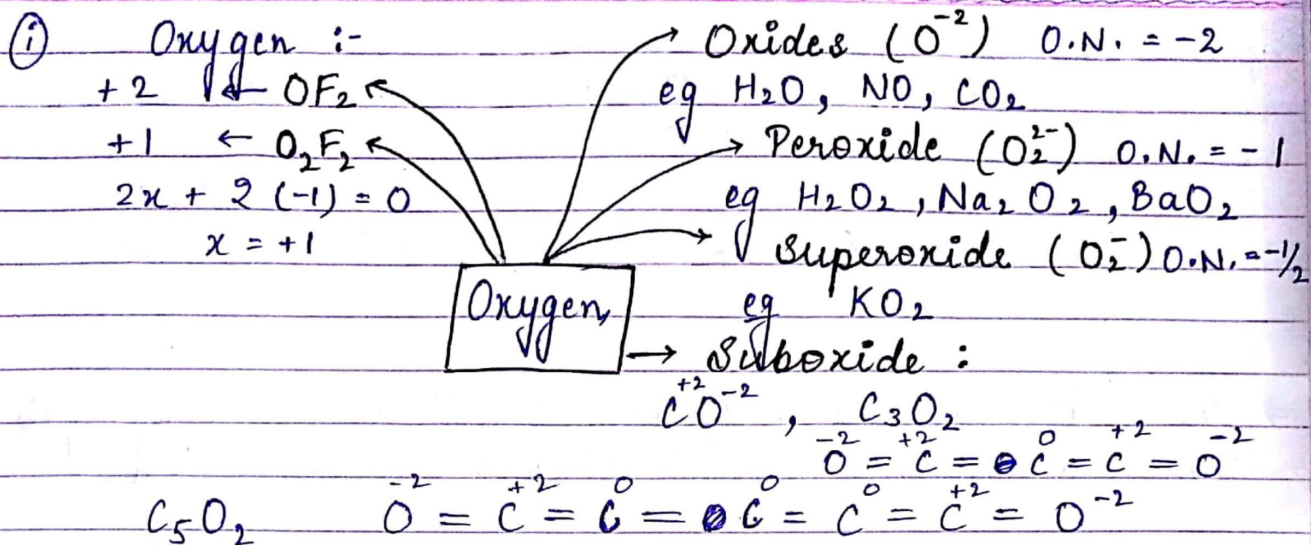 (i) Oxygen :-
+2 ← OF₂
+1 ← O₂F₂
2x + 2 (-1) = 0
x = +1
Oxygen
→ Oxides (O⁻²) O.N. = -2
eg H₂O, NO, CO₂
→ Peroxide (O₂²⁻) O.N. = -1
eg H₂O₂, Na₂O₂, BaO₂
→ Superoxide (O₂⁻) O.N. = -1/2
eg KO₂
→ Suboxide :
+2 -2
CO , C₃O₂
-2 +2 0 +2 -2
O = C = C = C = O
-2 +2 0 0 0 +2 -2
C₅O₂ O = C = C = C = C = C = O